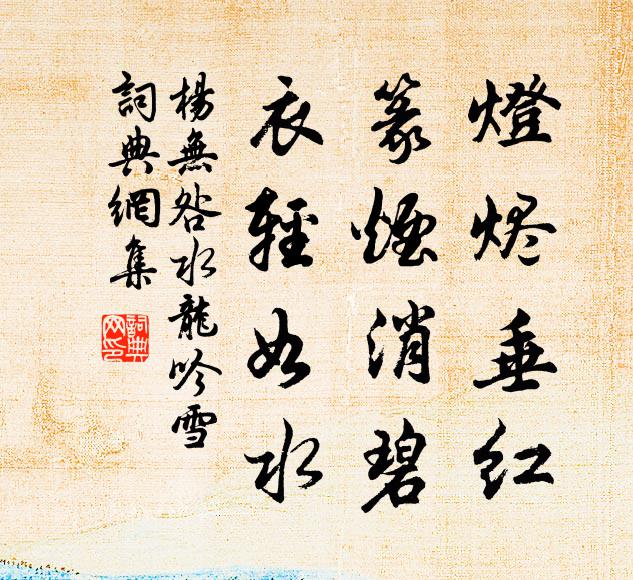 燈烬垂红
篆煙消碧
衣輕如水
楊無咎水龍吟雪
詞典網集
詞典
网印